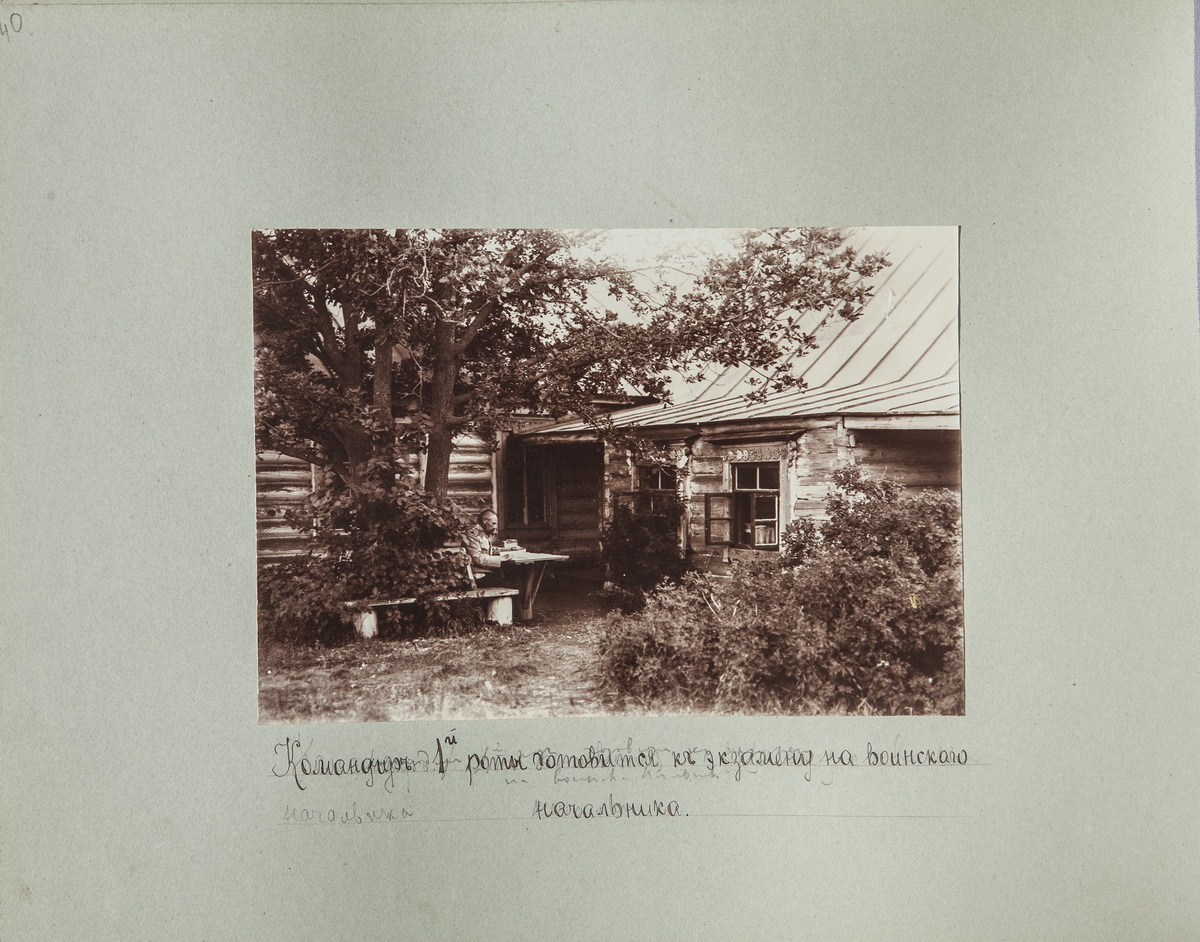 40
Командиръ 1й роты готовится къ экзамену на воинскаго
начальника.
начальника